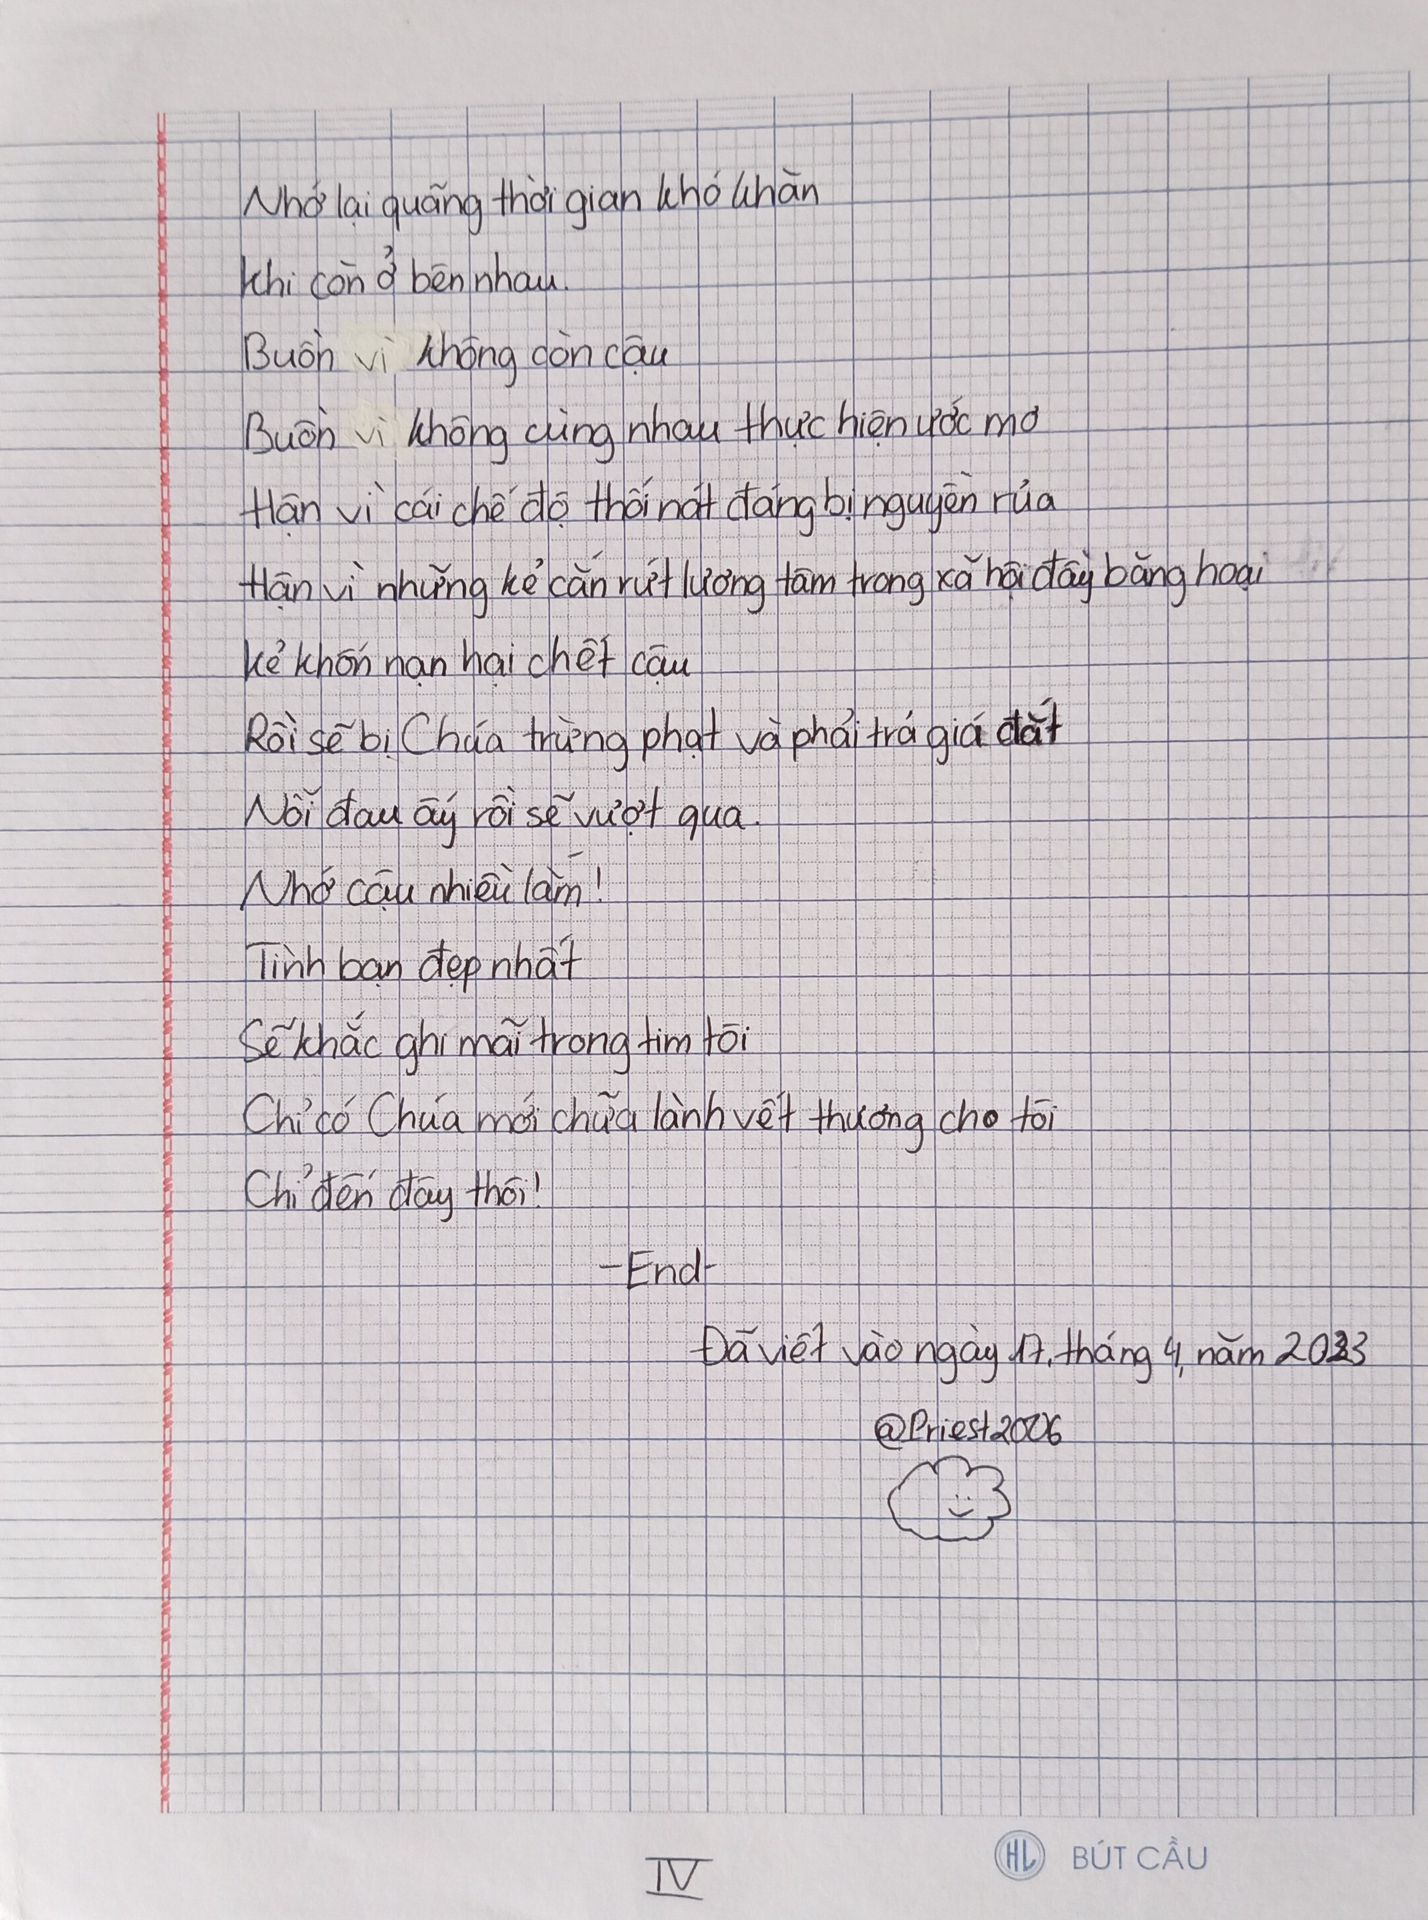 Nhớ lại quãng thời gian khó khăn
khi còn ở bên nhau.
Buồn vì không còn cậu
Buồn vì không cùng nhau thực hiện ước mơ
Hận vì cái chế độ thối nát đáng bị nguyền rủa
Hận vì những kẻ cắn rứt lương tâm trong xã hội đầy băng hoại
kẻ khốn nạn hại chết cậu
Rồi sẽ bị Chúa trừng phạt và phải trả giá đắt
Nỗi đau ấy rồi sẽ vượt qua.
Nhớ cậu nhiều lắm!
Tình bạn đẹp nhất
Sẽ khắc ghi mãi trong tim tôi
Chỉ có Chúa mới chữa lành vết thương cho tôi
Chỉ đến đây thôi!
-End-
Đã viết vào ngày 17, tháng 4, năm 2023
@Priest2006
IV
HL BÚT CẦU